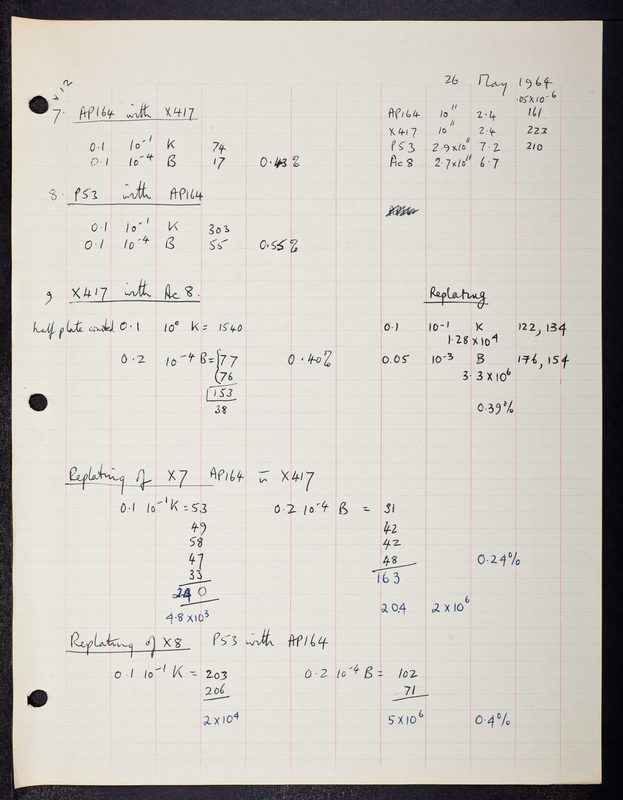 26 May 1964
X 12
7. AP164 with X417
0.1 10⁻¹ K 74
0.1 10⁻⁴ B 17 0.43%
.05×10⁻⁶
AP164 10¹¹ 2.4 161
X417 10¹¹ 2.4 223
P53 2.9×10¹¹ 7.2 210
Ac8 2.7×10¹¹ 6.7
8. P53 with AP164
0.1 10⁻¹ K 303
0.1 10⁻⁴ B 55 0.55%
9 X417 with Ac 8.
half plate counted 0.1 10⁰ K = 1540
0.2 10⁻⁴ B = 77 0.40%
76
153
38
Replating
0.1 10⁻¹ K 122, 134
1.28 × 10⁴
0.05 10⁻³ B 176, 154
3.3 × 10⁶
0.39%
Replating of X7 AP164 in X417
0.1 10⁻¹ K = 53 0.2 10⁻⁴ B = 31
49 42
58 42
47 48 0.24%
33 163
240
4.8 × 10³ 204 2 × 10⁶
Replating of X8 P53 with AP164
0.1 10⁻¹ K = 203 0.2 10⁻⁴ B = 102
206 71
2 × 10⁴ 5 × 10⁶ 0.4%